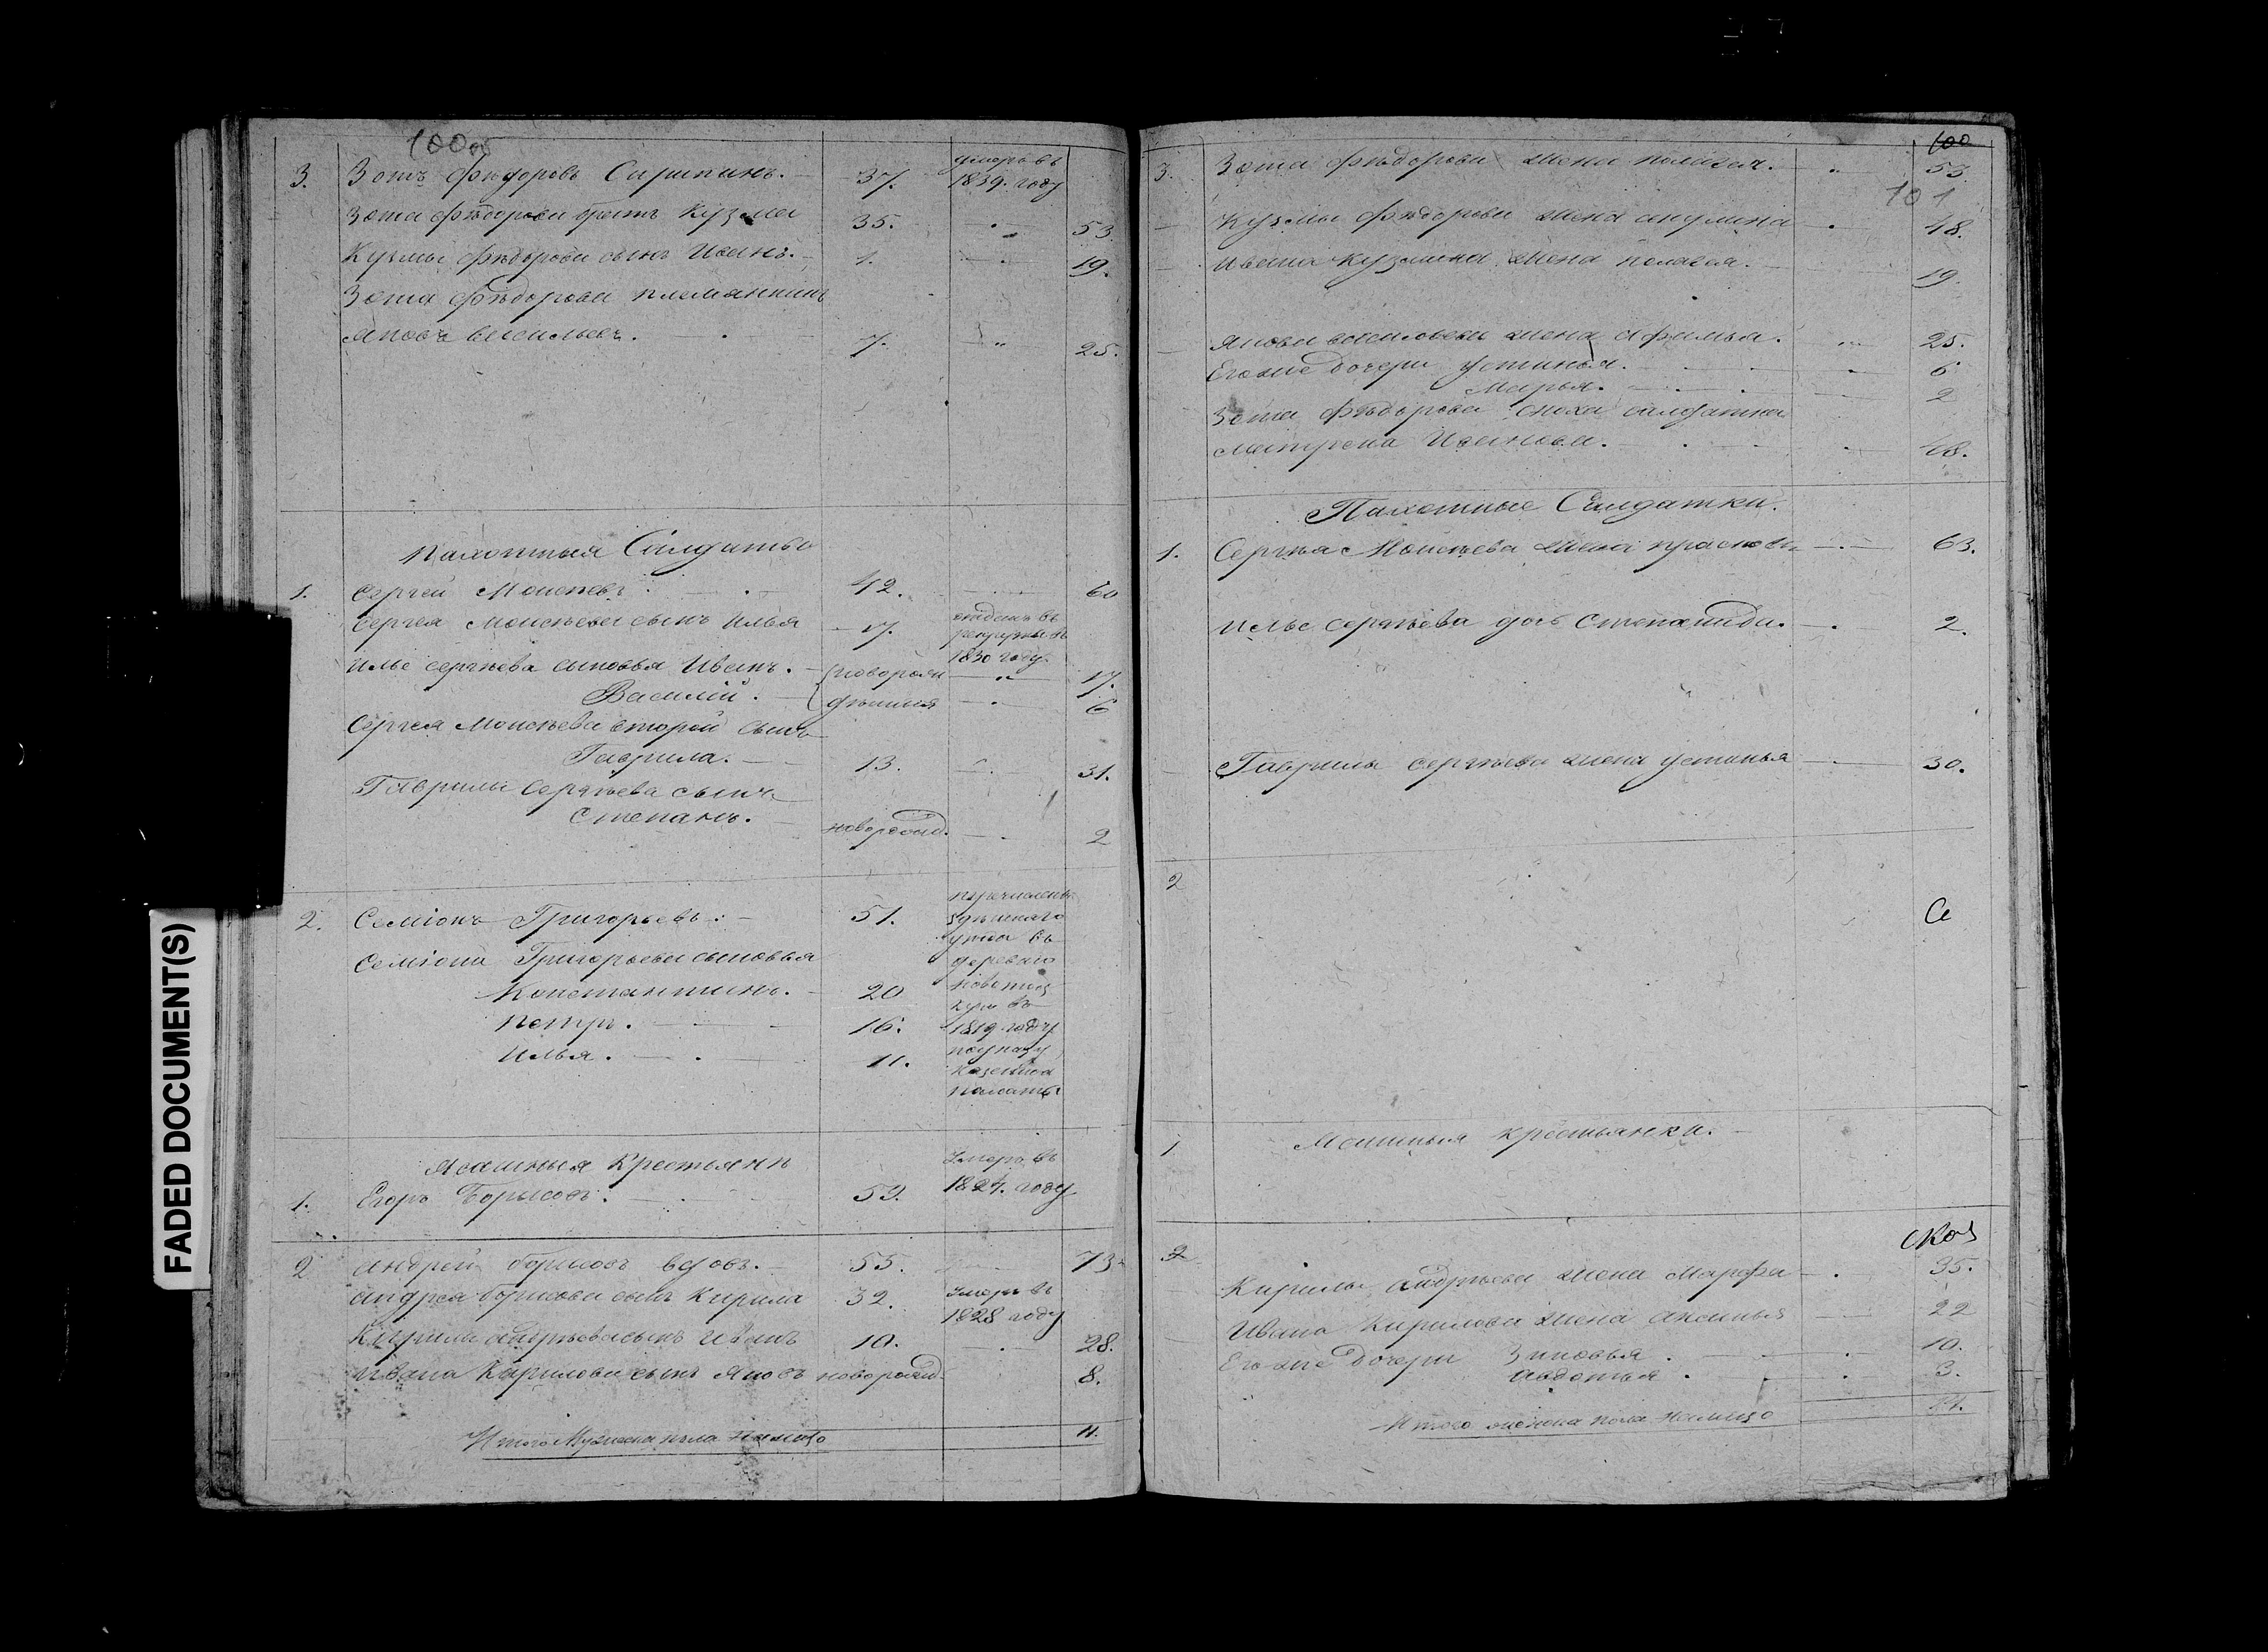 100 об
3. Зотъ Фѣдоровъ 37. умеръ въ 1839. году
Зота Фѣдорова братъ Кузма 35. 53.
Кузмы Фѣдорова сынъ Иванъ. 1. 19.
Зота Фѣдорова племянникъ
Яковъ Васильевъ. 7. 25.
Пахотныя Салдаты
1. Сергей Моисѣевъ 42. 60
Сергея Моисѣева сынъ Илья 17. отданъ въ рекруты въ 1830 году
Илье Сергѣева сыновья Иванъ. новорож 17.
Василій. дѣнныя 6
Сергея Моисѣева второй сынъ
Гаврила. 13. 31.
Гаврилы Сергѣева сынъ
Степанъ. новорожд. 2
2. Семіонъ Григорьевъ. 51.
Семіона Григорьева сыновья
Константинъ. 20
Петръ. 16.
Илья. 11.
перечислены
здѣшняго
уѣзда въ
деревню
въ
1819 году
по указу
Казенной
палаты
Ясашныя Крестьяни
1. Егоръ Борисовъ. 59. Умеръ въ 1827. году
2 Андрей Борисовъ вдовъ. 55. 73.
Андрея Борисова сынъ Кирила 32. Умеръ въ 1828 году
Кирилы Андрѣева сынъ Иванъ 10. 28.
Ивана Кирилова сынъ Яковъ новорожд. 8.
Итого Мужеска пола налицо 11.
100
101
3. Зота Фѣдорова жена Пелагея. 53
Кузмы Фѣдорова жена Акулина 48.
Ивана Кузмина жена Пелагея. 19.
Якова Васильева жена Афимья. 25.
Его же дочери Устинья. 6
Марья. 2
Зота Фѣдорова сноха салдатка
Матрена Иванова. 48.
Пахотные Салдатки.
1. Сергѣя Моисѣева жена Прасковья 63.
Илье Сергѣева дочь Степанида. 2.
Гаврилы Сергѣева жена Устинья 30.
2
1 Ясашныя Крестьянки.
2
Кирилы Андрѣева жена Марфа 35.
Ивана Кирилова жена Аксинья 22
Его же дочери Зиновья. 10.
Авдотья. 3.
Итого женска пола налицо
FADED DOCUMENT(S)